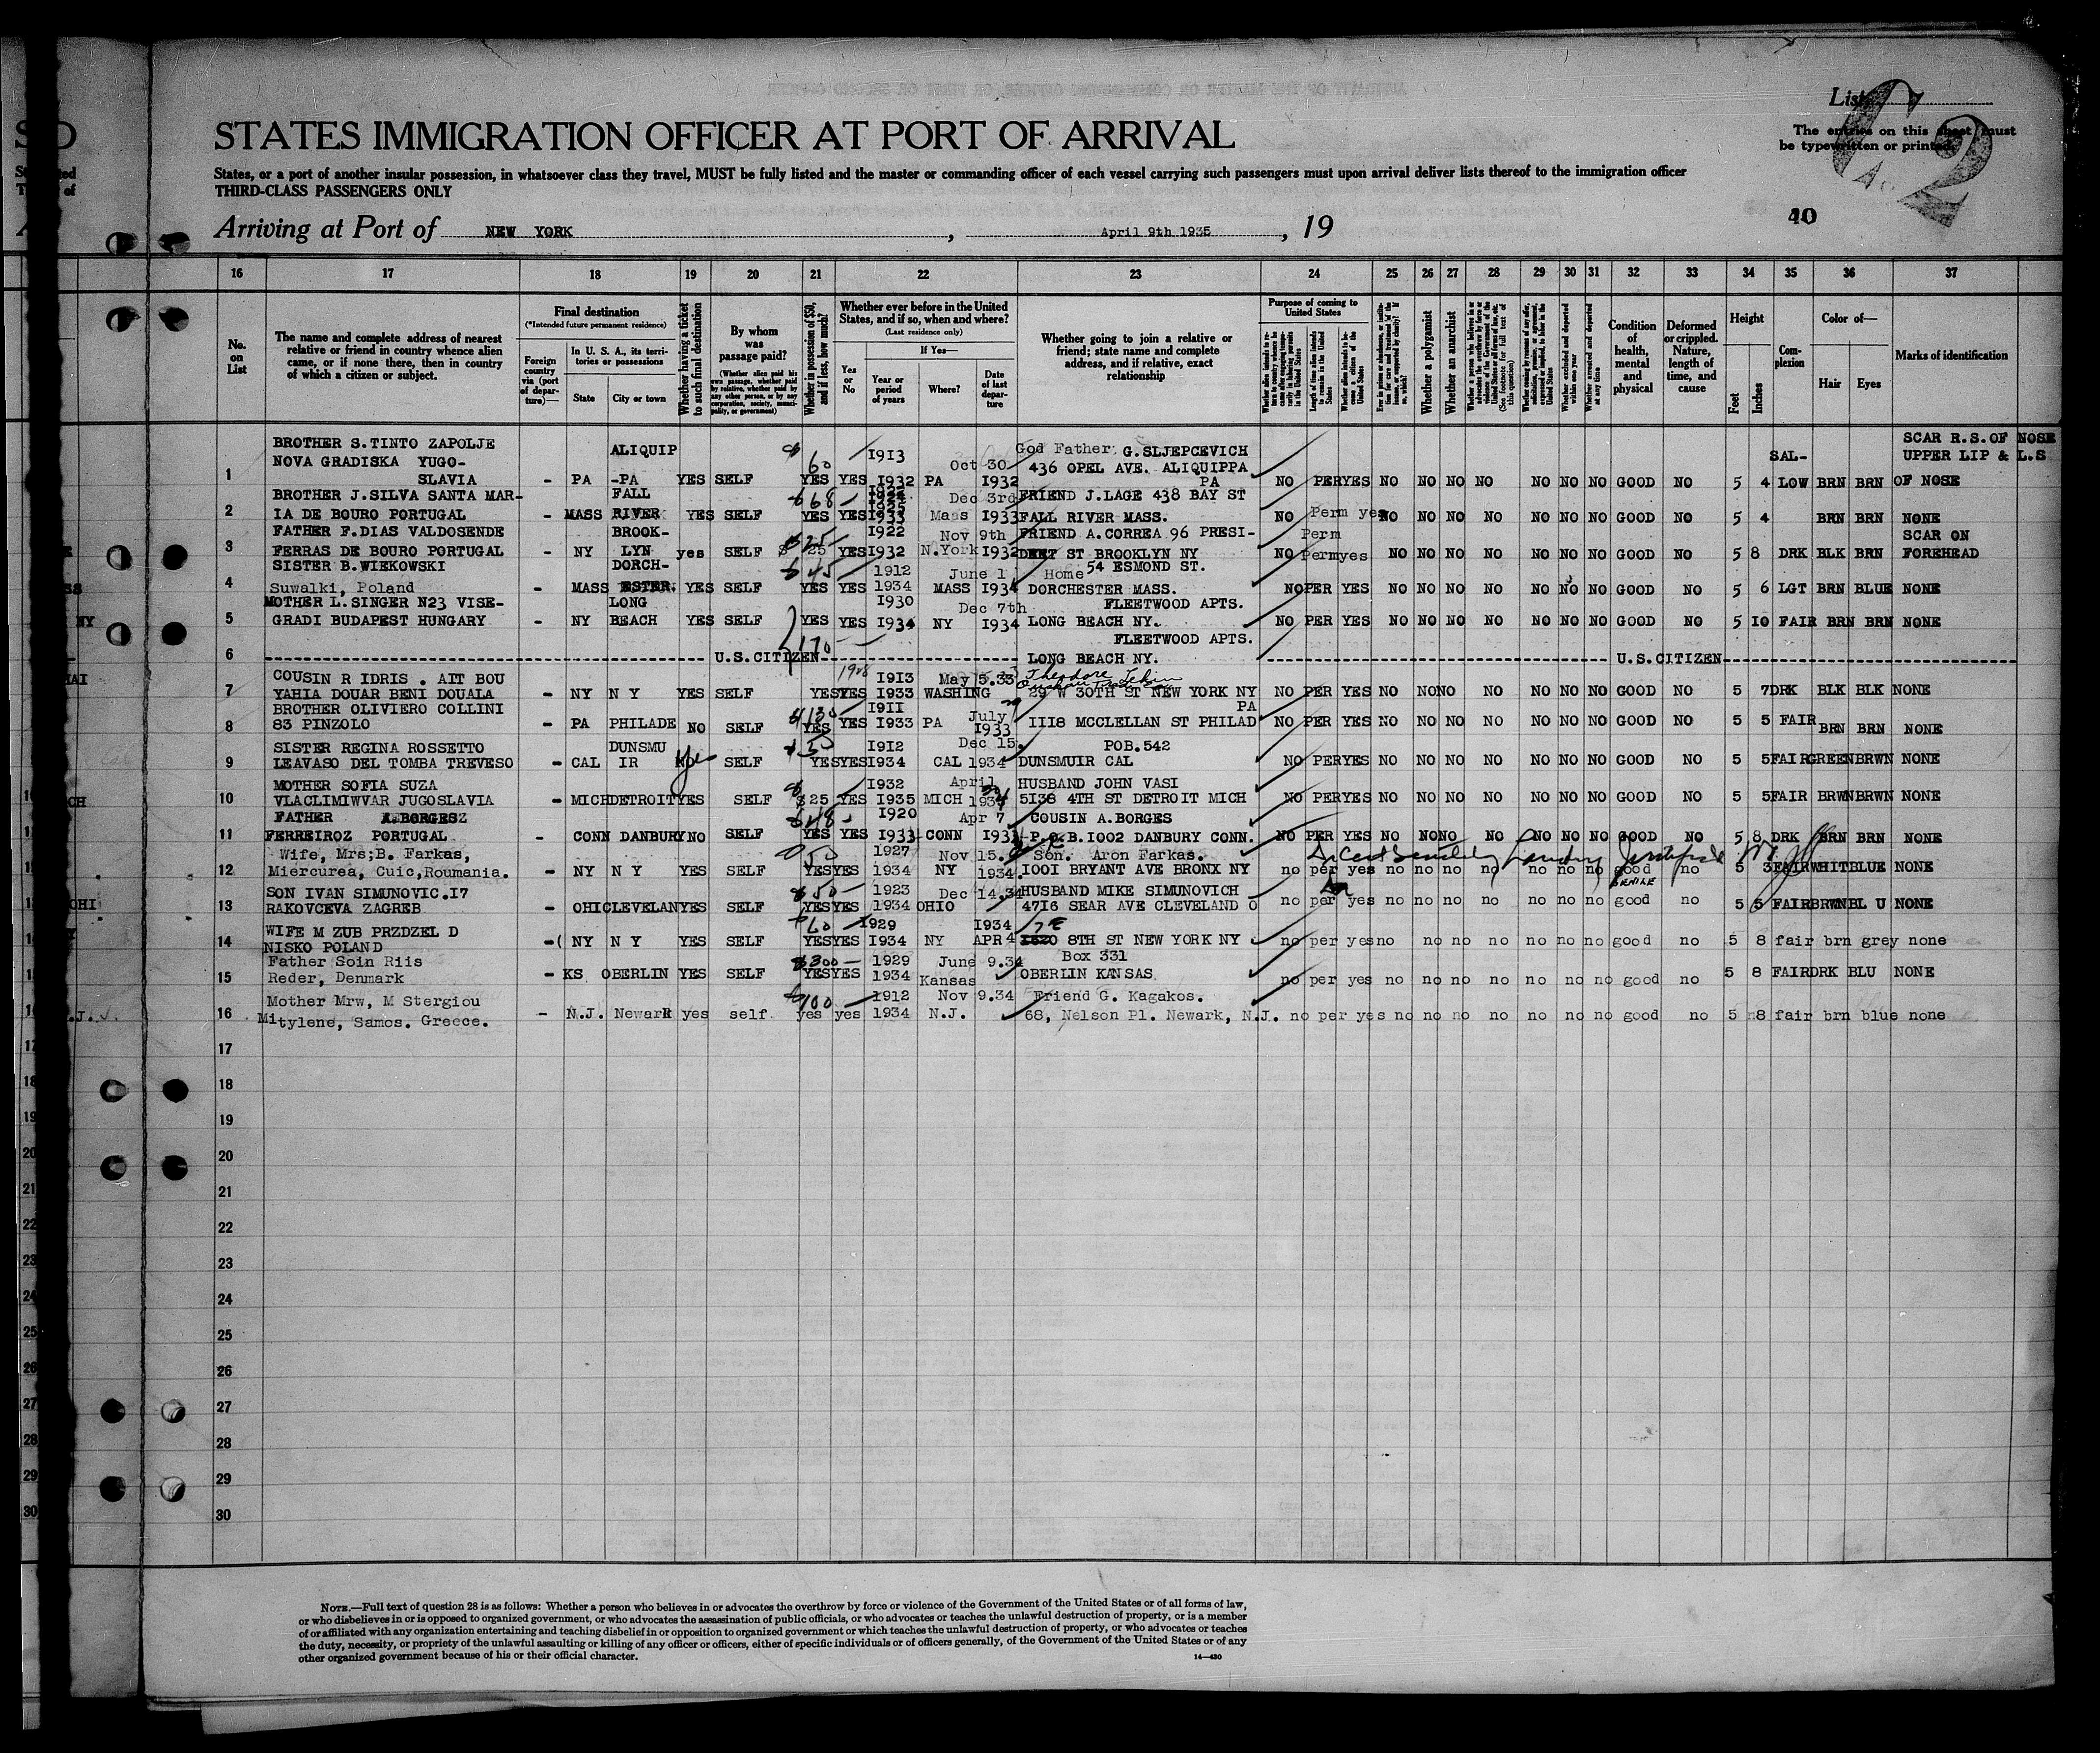 List
STATES IMMIGRATION OFFICER AT PORT OF ARRIVAL
The entries on this sheet must
be typewritten or printed.
States, or a port of another insular possession, in whatsoever class they travel, MUST be fully listed and the master or commanding officer of each vessel carrying such passengers must upon arrival deliver lists thereof to the immigration officer
THIRD-CLASS PASSENGERS ONLY
40
Arriving at Port of NEW YORK, April 9th 1935, 19
16 17 18 19 20 21 22 23 24 25 26 27 28 29 30 31 32 33 34 35 36 37
No. on List
The name and complete address of nearest relative or friend in country whence alien came, or if none there, then in country of which a citizen or subject.
Final destination
(*Intended future permanent residence)
Foreign country via (port of departure)—
In U. S. A., its territories or possessions
State
City or town
Whether having a ticket to such final destination
By whom was passage paid?
(Whether alien paid his own passage, whether paid by relative, whether paid by any other person, or by any corporation, society, municipality, or government)
Whether in possession of $50, and if less, how much?
Whether ever before in the United States, and if so, when and where?
(Last residence only)
If Yes—
Yes or No
Year or period of years
Where?
Date of last departure
Whether going to join a relative or friend; state name and complete address, and if relative, exact relationship
Purpose of coming to United States
Whether a polygamist
Whether an anarchist
Condition of health, mental and physical
Deformed or crippled. Nature, length of time, and cause
Height
Feet
Inches
Complexion
Color of—
Hair
Eyes
Marks of identification
BROTHER S.TINTO ZAPOLJE ALIQUIP $ 60 1913 God Father G.SLJEPCEVICH SCAR R.S.OF NOSE
NOVA GRADISKA YUGO- Oct 30 436 OPEL AVE. ALIQUIPPA SAL- UPPER LIP & L.S
1 SLAVIA - PA -PA YES SELF YES YES 1932 PA 1932 PA NO PER YES NO NO NO NO NO NO NO GOOD NO 5 4 LOW BRN BRN OF NOSE
BROTHER J.SILVA SANTA MAR- FALL $68 Dec 3rd FRIEND J.LAGE 438 BAY ST
2 IA DE BOURO PORTUGAL - MASS RIVER YES SELF YES YES 1933 Mass 1933 FALL RIVER MASS. NO Perm yes NO NO NO NO NO NO NO GOOD NO 5 4 BRN BRN NONE
FATHER F.DIAS VALDOSENDE BROOK- 1922 Nov 9th FRIEND A.CORREA 96 PRESI- Perm SCAR ON
3 FERRAS DE BOURO PORTUGAL - NY LYN yes SELF $ 25 YES 1932 N.York 1932 DENT ST BROOKLYN NY NO Perm yes NO NO NO NO NO NO NO GOOD NO 5 8 DRK BLK BRN FOREHEAD
SISTER B.WIEKOWSKI DORCH- $45 1912 June 1 Home 54 ESMOND ST.
4 Suwalki, Poland MASS ESTER. YES SELF YES YES 1934 MASS 1934 DORCHESTER MASS. NO PER YES NO NO NO NO NO NO NO GOOD NO 5 6 LGT BRN BLUE NONE
MOTHER L.SINGER N23 VISE- LONG 1930 Dec 7th FLEETWOOD APTS.
5 GRADI BUDAPEST HUNGARY - NY BEACH YES SELF YES YES 1934 NY 1934 LONG BEACH NY. NO PER YES NO NO NO NO NO NO NO GOOD NO 5 10 FAIR BRN BRN NONE
170 FLEETWOOD APTS.
6 U.S.CITIZEN LONG BEACH NY. U.S.CITIZEN
COUSIN R IDRIS . AIT BOU 1928 1913 May 5.33 Theodore
7 YAHIA DOUAR BENI DOUALA - NY N Y YES SELF YES YES 1933 WASHING 29 W 30TH ST NEW YORK NY NO PER YES NO NO NO NO NO NO NO GOOD NO 5 7 DRK BLK BLK NONE
BROTHER OLIVIERO COLLINI $130 1911 July PA
8 83 PINZOLO - PA PHILADE NO SELF YES YES 1933 PA 1933 1118 MCCLELLAN ST PHILAD NO PER YES NO NO NO NO NO NO NO GOOD NO 5 5 FAIR BRN BRN NONE
SISTER REGINA ROSSETTO DUNSMU $50 1912 Dec 15. POB.542
9 LEAVASO DEL TOMBA TREVESO - CAL IR Yes SELF YES YES 1934 CAL 1934 DUNSMUIR CAL NO PER YES NO NO NO NO NO NO NO GOOD NO 5 5 FAIR GREEN BRWN NONE
MOTHER SOFIA SUZA 1932 April HUSBAND JOHN VASI
10 VLACLIMIWVAR JUGOSLAVIA - MICH DETROIT YES SELF $25 YES 1935 MICH 1934 5138 4TH ST DETROIT MICH NO PER YES NO NO NO NO NO NO NO GOOD NO 5 5 FAIR BRWN BRWN NONE
FATHER A.BORGES $48 1920 Apr 7 COUSIN A.BORGES
11 FERREIROZ PORTUGAL - CONN DANBURY NO SELF YES YES 1933 CONN 1933 P.O.B.1002 DANBURY CONN. NO PER YES NO NO NO NO NO NO NO GOOD NO 5 8 DRK BRN BRN NONE
Wife, Mrs;B. Farkas, $50 1927 Nov 15. Son. Aron Farkas.
12 Miercurea, Cuic,Roumania. - NY N Y YES SELF YES YES 1934 NY 1934. 1001 BRYANT AVE BRONX NY no per yes no no no no no no no good no 5 3 FAIR WHIT BLUE NONE
SENILE
SON IVAN SIMUNOVIC.17 $50 1923 Dec 14.34 HUSBAND MIKE SIMUNOVICH
13 RAKOVCEVA ZAGREB - OHI CLEVELAN YES SELF YES YES 1934 OHIO 4716 SEAR AVE CLEVELAND O no per yes no no no no no no no good no 5 5 FAIR BRWN BL U NONE
WIFE M ZUB PRZDZEL D $60 1929 1934 7 E
14 NISKO POLAND - NY N Y YES SELF YES YES 1934 NY APR 4 8TH ST NEW YORK NY no per yes no no no no no no no good no 5 8 fair brn grey none
Father Soin Riis $300 1929 June 9.34 Box 331
15 Reder, Denmark - KS OBERLIN YES SELF YES YES 1934 Kansas OBERLIN KANSAS no per yes no no no no no no no good no 5 8 FAIR DRK BLU NONE
Mother Mrw, M Stergiou $100 1912 Nov 9.34 Friend G. Kagakos.
16 Mitylene, Samos. Greece. - N.J. Newark yes self yes yes 1934 N.J. 68, Nelson Pl. Newark, N.J. no per yes no no no no no no no good no 5 8 fair brn blue none
17
18
19
20
21
22
23
24
25
26
27
28
29
30
NOTE.—Full text of question 28 is as follows: Whether a person who believes in or advocates the overthrow by force or violence of the Government of the United States or of all forms of law,
or who disbelieves in or is opposed to organized government, or who advocates the assassination of public officials, or who advocates or teaches the unlawful destruction of property, or is a member
of or affiliated with any organization entertaining and teaching disbelief in or opposition to organized government or which teaches the unlawful destruction of property, or who advocates or teaches
the duty, necessity, or propriety of the unlawful assaulting or killing of any officer or officers, either of specific individuals or of officers generally, of the Government of the United States or of any
other organized government because of his or their official character.
14—430